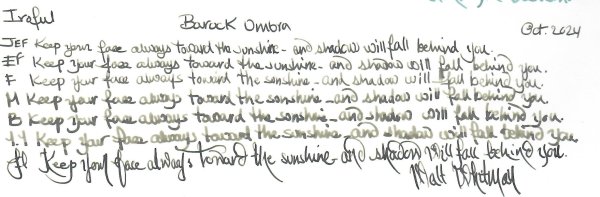 Iroful Barock Ombra Oct. 2024
JEF Keep your face always toward the sunshine - and shadow will fall behind you.
EF Keep your face always toward the sunshine - and shadow will fall behind you.
F Keep your face always toward the sunshine - and shadow will fall behind you.
M Keep your face always toward the sunshine - and shadow will fall behind you.
B Keep your face always toward the sunshine - and shadow will fall behind you.
1.1 Keep your face always toward the sunshine - and shadow will fall behind you.
Keep your face always toward the sunshine - and shadow will fall behind you.
Walt Whitman